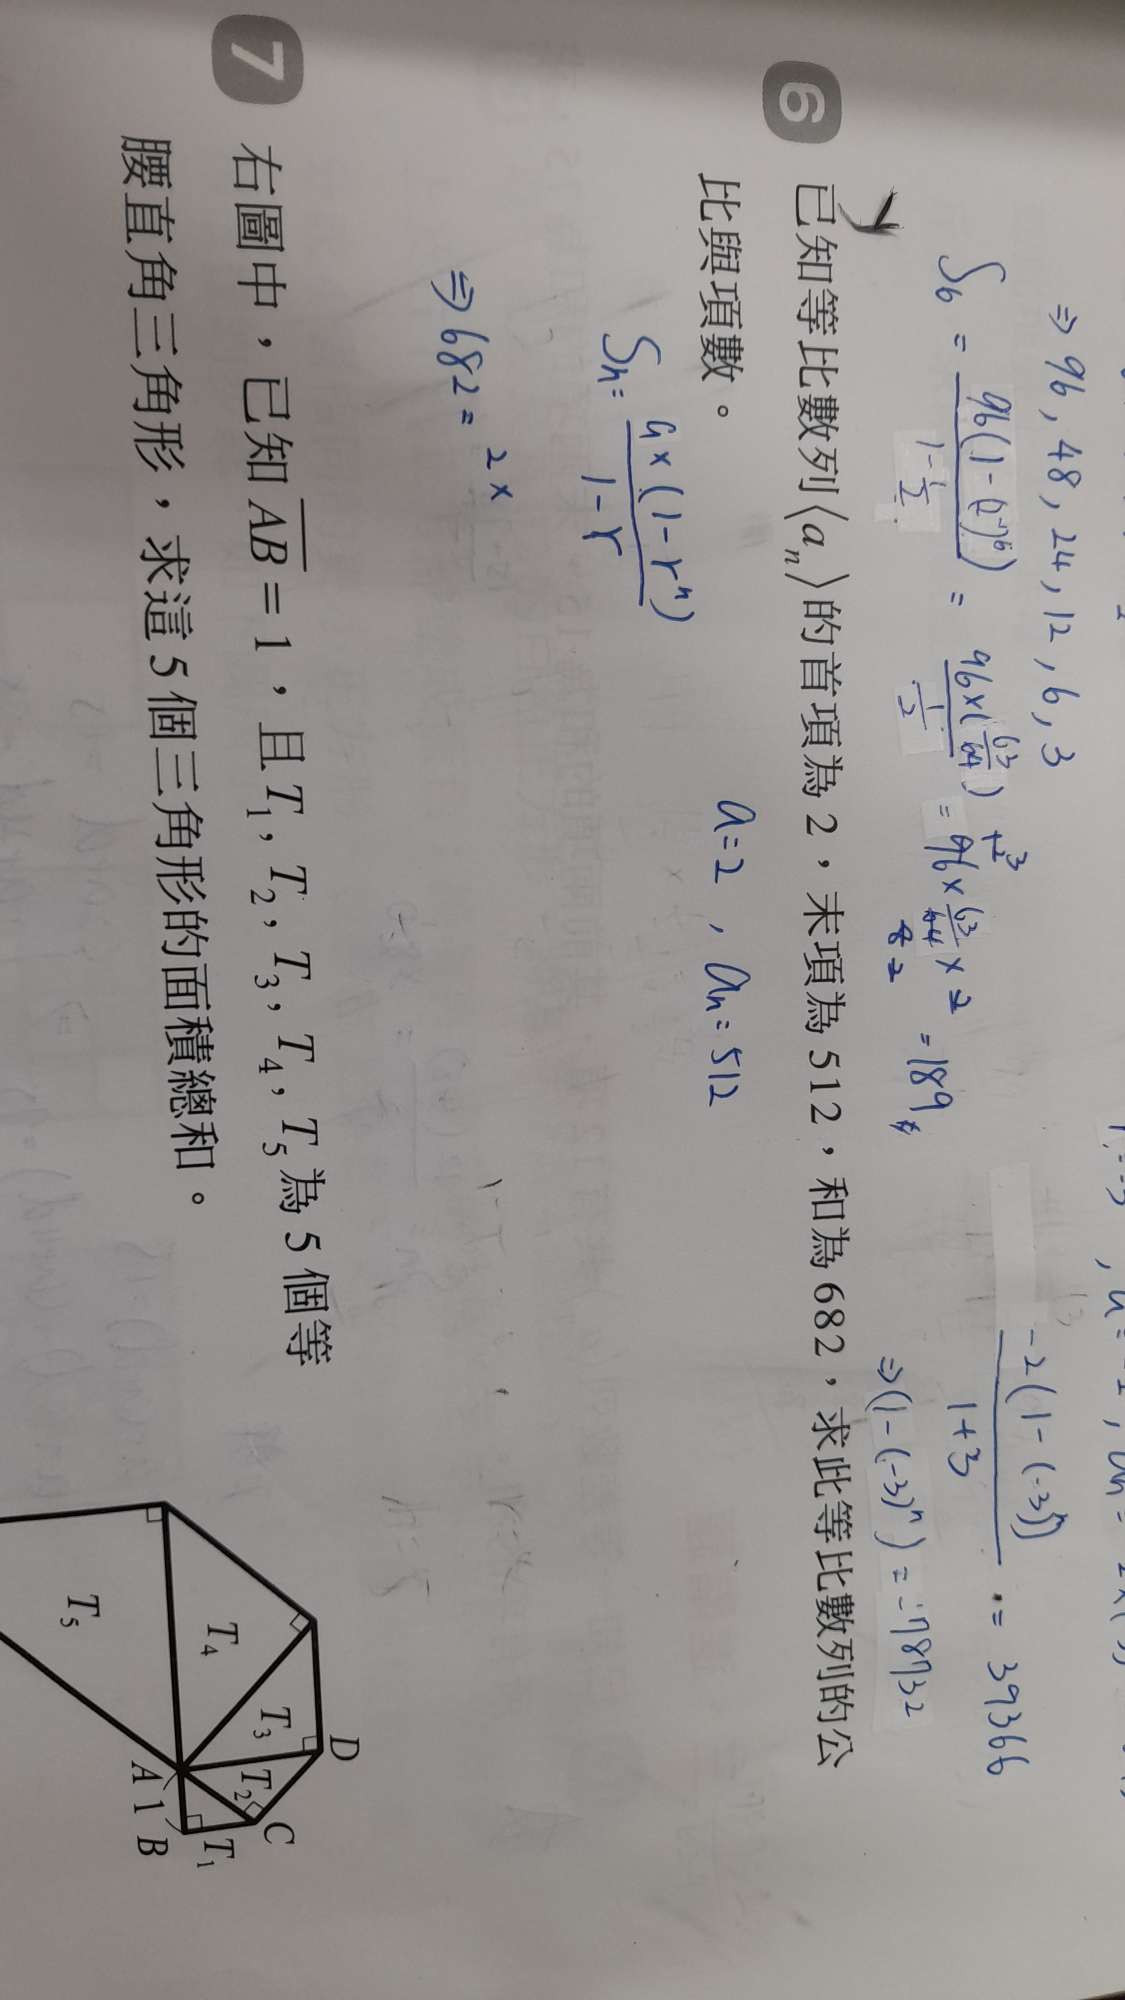 ⇒ 96, 48, 24, 12, 6, 3
S₆ = 96(1-(½)⁶) / 1-½ = 96×(63/64) / ½ = 96×63/64×2 = 189
-2(1-(-3)ⁿ) / 1+3 = 39366
⇒(1-(-3)ⁿ) = -78732
6 已知等比數列⟨aₙ⟩的首項為 2,末項為 512,和為 682,求此等比數列的公
比與項數。
a=2, aₙ=512
Sₙ= a×(1-rⁿ) / 1-r
⇒ 682 = 2×
7 右圖中,已知 AB = 1,且 T₁, T₂, T₃, T₄, T₅ 為 5 個等
腰直角三角形,求這 5 個三角形的面積總和。
D
C
T₃
T₂
T₄
T₁
A 1 B
T₅